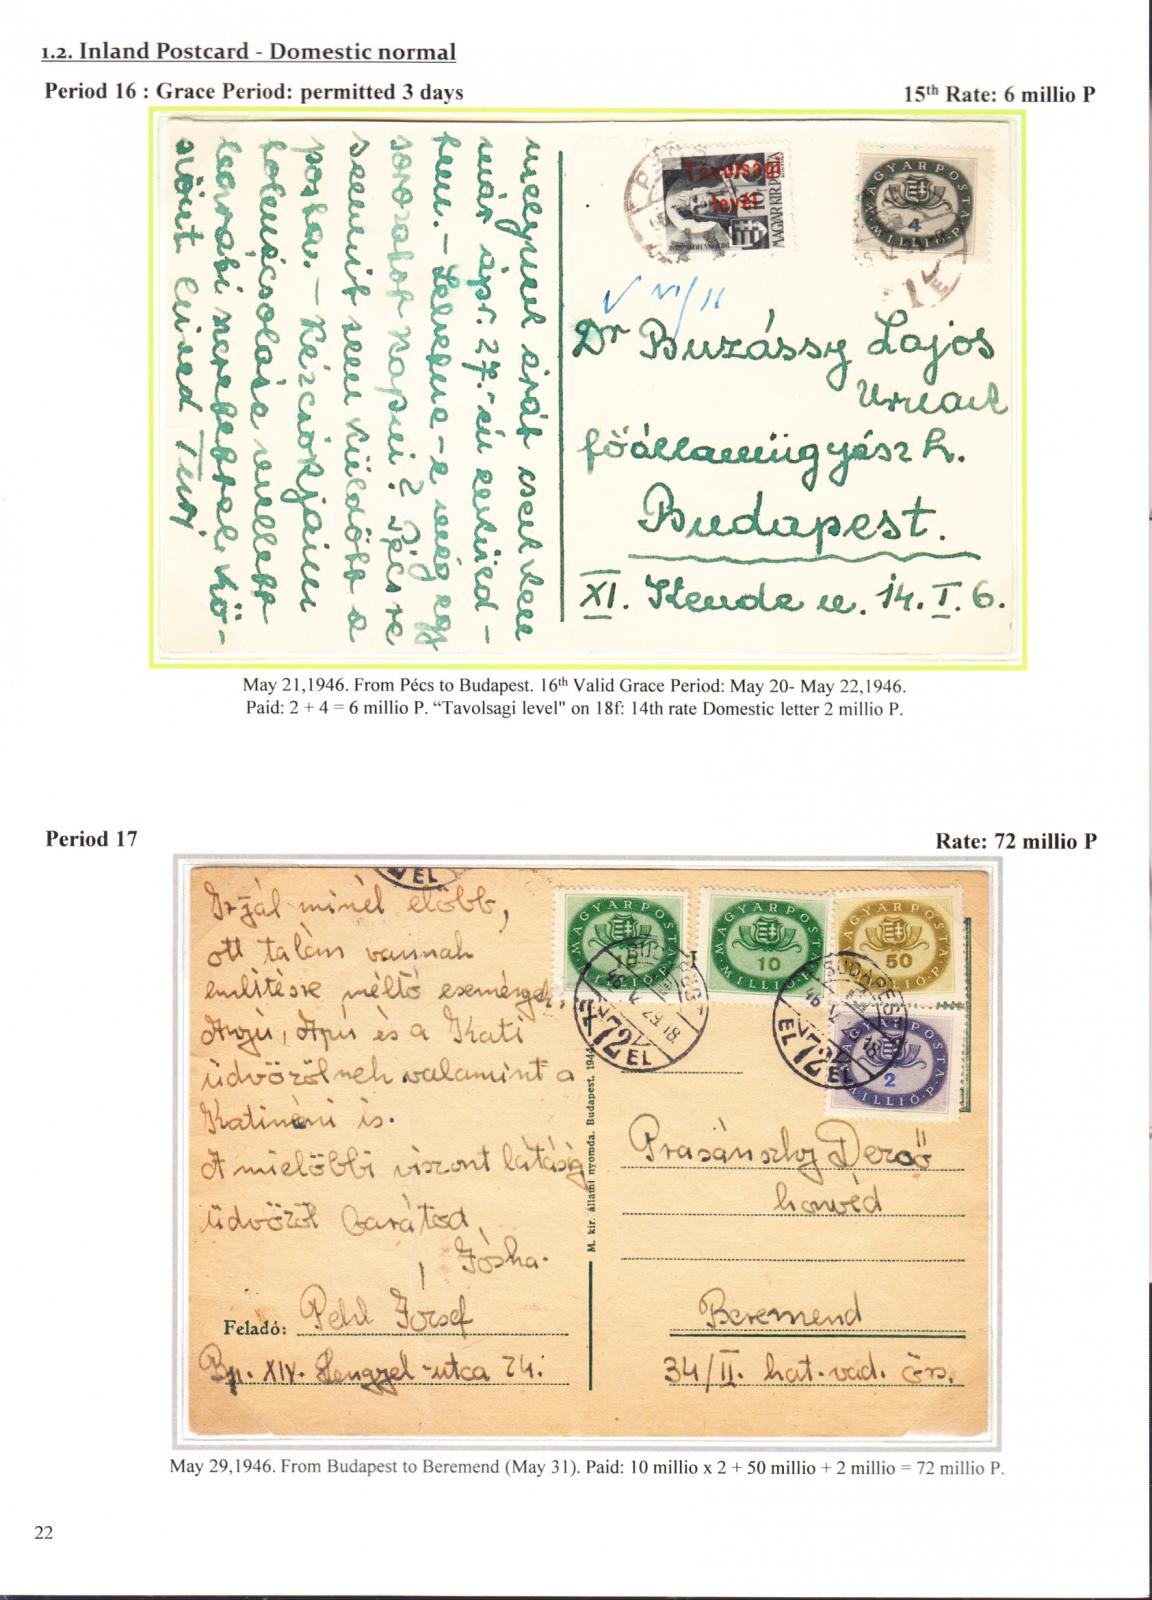 1.2. Inland Postcard - Domestic normal
Period 16 : Grace Period: permitted 3 days
15th Rate: 6 millio P
már ápr. 27.-én
Pécsre
semmit sem küldött a
Kézcsókjaim
Távolsági
levél
MAGYAR KIR. POSTA
MAGYAR POSTA
4
MILLIÓ P
V VI/11
Dr Buzássy Lajos
Urnak
főállamügyész h.
Budapest.
XI. Kende u. 14. I. 6.
May 21,1946. From Pécs to Budapest. 16th Valid Grace Period: May 20- May 22,1946.
Paid: 2 + 4 = 6 millio P. “Tavolsagi level" on 18f: 14th rate Domestic letter 2 millio P.
Period 17
Rate: 72 millio P
EL
Irjál minél előbb,
ott talán vannak
említésre méltó események.
Anyú, Apú és a Kati
üdvözölnek valamint a
Katinéni is.
A mielőbbi viszont látásig
üdvözöl barátod,
Jóska.
Feladó: Pehl József
Bp. XIV. Lengyel-utca 24.
M. kir. állami nyomda. Budapest. 1944.
MAGYAR POSTA
10
MILLIÓ P
MAGYAR POSTA
10
MILLIÓ P
MAGYAR POSTA
50
MILLIÓ P
MAGYAR POSTA
2
MILLIÓ P
BUDAPEST
72
EL
BUDAPEST
EL 72 EL
Dezső
honvéd
Beremend
34/II. hat. vad. őrs.
May 29,1946. From Budapest to Beremend (May 31). Paid: 10 millio x 2 + 50 millio + 2 millio = 72 millio P.
22